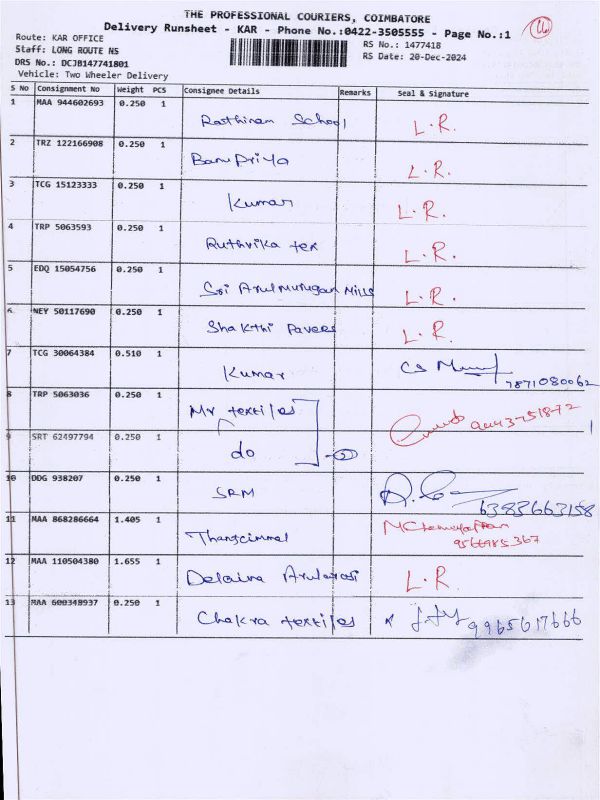 THE PROFESSIONAL COURIERS, COIMBATORE
Delivery Runsheet - KAR - Phone No.:0422-3505555 - Page No.:1
Route: KAR OFFICE RS No.: 1477418
Staff: LONG ROUTE NS RS Date: 20-Dec-2024
DRS No.: DCJB147741801
Vehicle: Two Wheeler Delivery
S No Consignment No Weight PCS Consignee Details Remarks Seal & Signature
1 MAA 944602693 0.250 1 Rathinam School L.R.
2 TRZ 122166908 0.250 1 BanuPriya L.R.
3 TCG 15123333 0.250 1 Kumar L.R.
4 TRP 5063593 0.250 1 Ruthvika tex L.R.
5 EDQ 15054756 0.250 1 Sri Arulmurugan Mills L.R.
6 NEY 50117690 0.250 1 Shakthi Pavers L.R.
7 TCG 30064384 0.510 1 Kumar 7871080062
8 TRP 5063036 0.250 1 Mr textiles 9443751872
9 SRT 62497794 0.250 1 do 2
10 DDG 938207 0.250 1 SRM 6383663158
11 MAA 868286664 1.405 1 9566985367
12 MAA 110504380 1.655 1 L.R.
13 MAA 600349937 0.250 1 Chakra textiles 9965617666